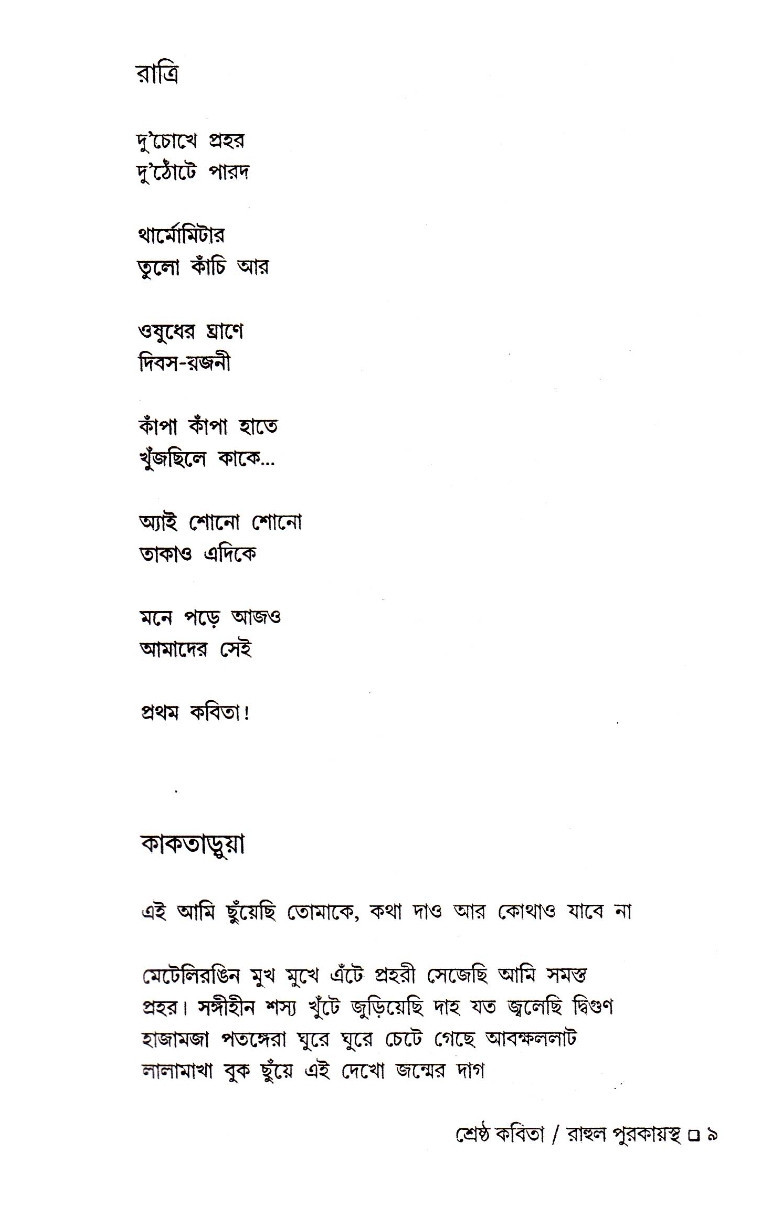 রাত্রি
দু'চোখে প্রহর
দু'ঠোঁটে পারদ
থার্মোমিটার
তুলো কাঁচি আর
ওষুধের ঘ্রাণে
দিবস-রজনী
কাঁপা কাঁপা হাতে
খুঁজছিলে কাকে...
অ্যাই শোনো শোনো
তাকাও এদিকে
মনে পড়ে আজও
আমাদের সেই
প্রথম কবিতা!
কাকতাড়ুয়া
এই আমি ছুঁয়েছি তোমাকে, কথা দাও আর কোথাও যাবে না
মেটেলিরঙিন মুখ মুখে এঁটে প্রহরী সেজেছি আমি সমস্ত
প্রহর। সঙ্গীহীন শস্য খুঁটে জুড়িয়েছি দাহ যত জ্বলেছি দ্বিগুণ
হাজামজা পতঙ্গেরা ঘুরে ঘুরে চেটে গেছে আবক্ষললাট
লালামাখা বুক ছুঁয়ে এই দেখো জন্মের দাগ
শ্রেষ্ঠ কবিতা / রাহুল পুরকায়স্থ □ ৯